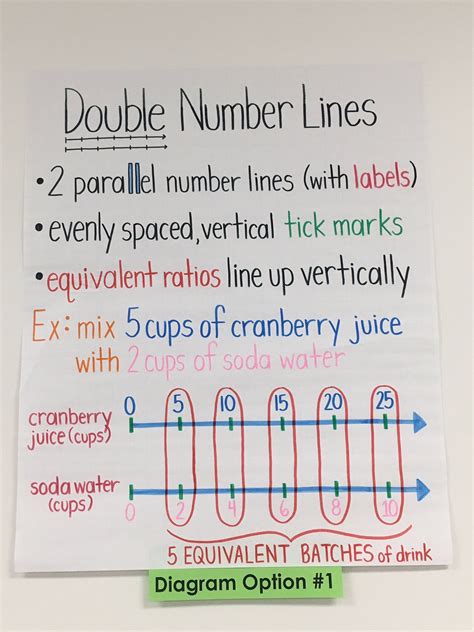 Double Number Lines
• 2 parallel number lines (with labels)
• evenly spaced, vertical tick marks
• equivalent ratios line up vertically
Ex: mix 5 cups of cranberry juice
with 2 cups of soda water
0 5 10 15 20 25
cranberry
juice (cups)
soda water
(cups)
0 2 4 6 8 10
5 EQUIVALENT BATCHES of drink
Diagram Option #1